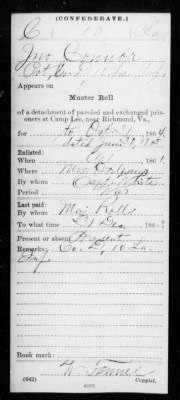 (CONFEDERATE.)
C 10 La
Jno Connor
Appears on
Muster Roll
of a detachment of paroled and exchanged pris-
oners at Camp Lee, near Richmond, Va.,
for to Oct 31, 1864.
dated Jan 1865
Enlisted:
When 1861.
Where New Orleans
By whom Capt
Period War
Last paid:
By whom Maj
To what time 31 Dec 186
Present or absent Present
Remarks: Co. 10 La
Book mark:
(642) Copyist.